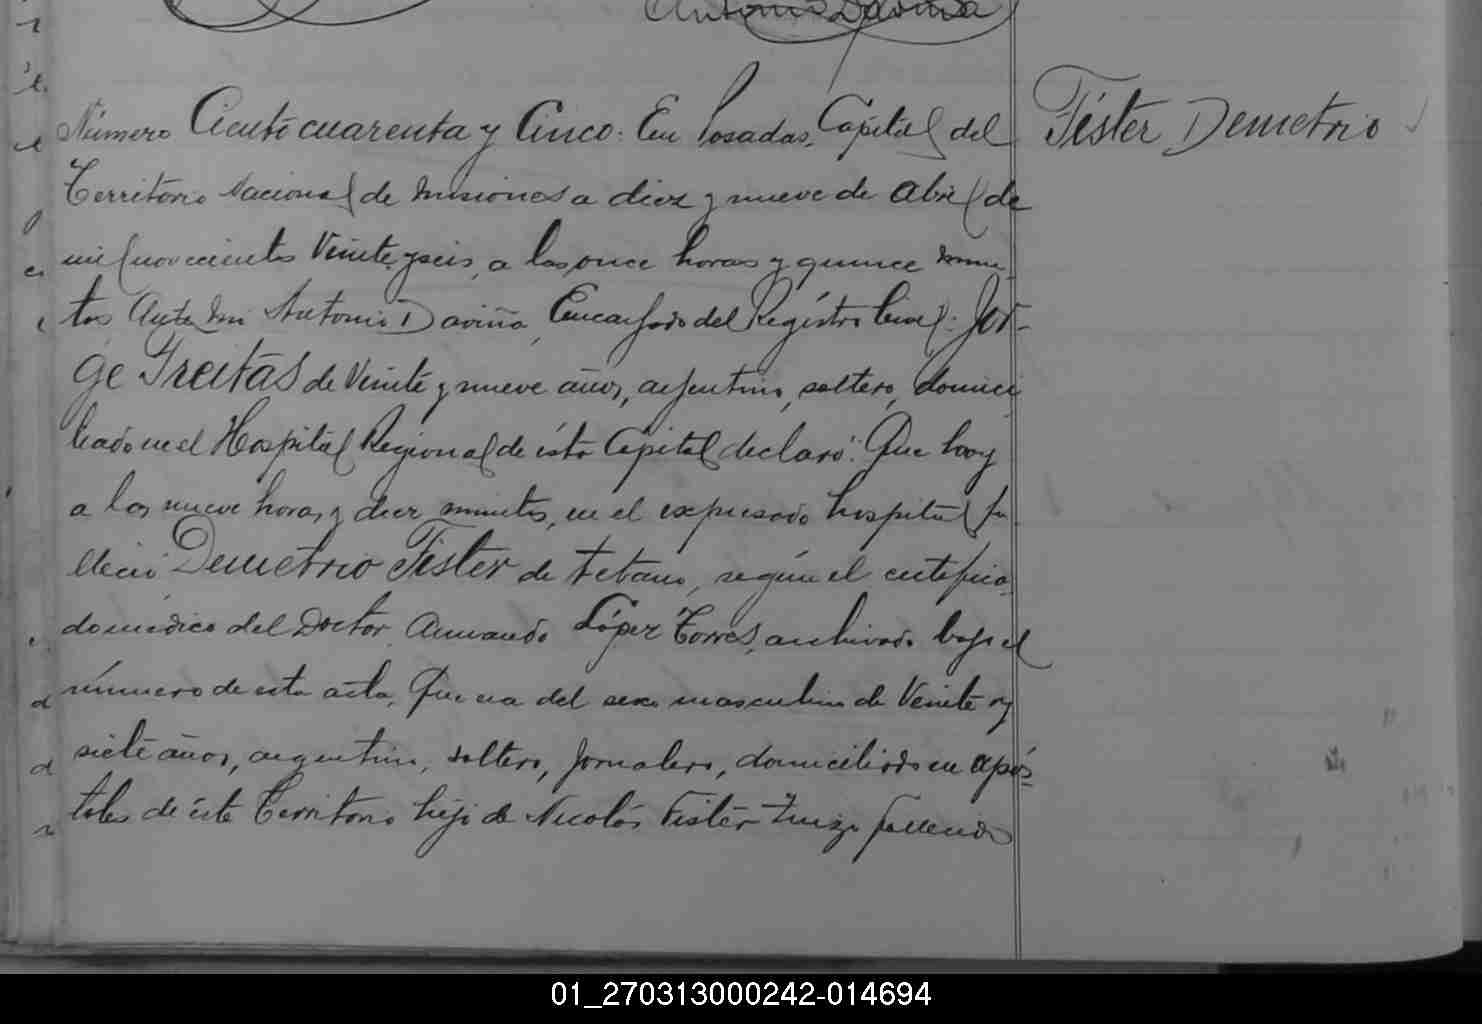 Antonio Daviña
Número Ciento cuarenta y Cinco: En Posadas, Capital del
Territorio Nacional de Misiones a diez y nueve de Abril de
mil novecientos Veinte y seis, a las once horas y quince minu-
tos Ante mi Antonio Daviña, Encargado del Régistro Civil: Jor-
ge Freitas de Veinte y nueve años, argentino, soltero, domici
liado en el Hospital Regional de ésta Capital declaró: Que hoy
a las nueve horas y diez minutos, en el expresado hospital fa-
lleció Demetrio Fister de tetano, según el certifica-
do médico del Doctor Armando López Torres, archivado bajo el
número de esta acta, Que era del sexo masculino de Veinte y
siete años, argentino, soltero, jornalero, domiciliado en Após-
toles de éste Territorio hijo de Nicolás Fister fallecido
Fister Demetrio
01_270313000242-014694